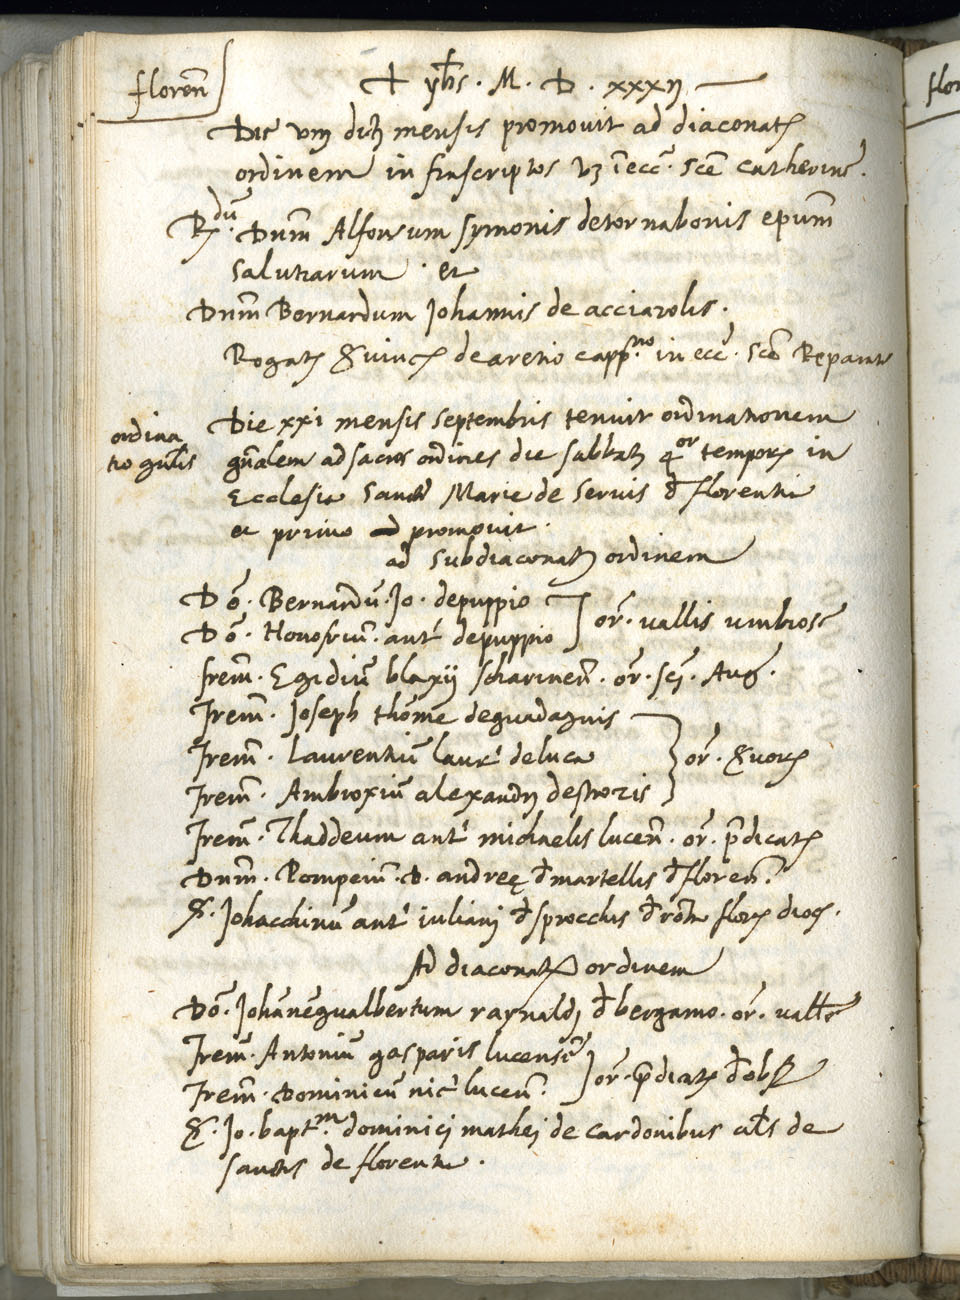 floren̄
+ yhs . M . D . xxxij
Die viij dicti mensis promovit ad diaconatꝰ
ordinem in frascriptos vz ī ecc̄ . sc̄e catherine .
R.dū Dnm̄ Alfonsum symonis detornabonis epum̄
salutiarum . et
Dnm̄ Bernardum Johannis de acciarolis .
Rogatꝭ de aretio capp.no in ecc̄ . sc̄e Reparate
ordina
tio gn̄lis
Die xxi mensis septembris tenuit ordinationem
gn̄alem ad sacros ordines die sabbati qor temporꝭ in
Ecclesia Sancte Marie de Servis đ florentia
et primo promovit .
ad subdiaconatꝰ ordinem
Dō . Bernardū . Jo . depuppio
Dō . Honofriū . antⁱ depuppio
or̄ . vallis umbrose
frem̄ . Egidiū blaxij . or̄ . sci . Aug .
frem̄ . Joseph thōme deguadagnis
frem̄ . Laurentiū laurⁱ deluca
frem̄ . Ambroxiū alexandrj destrozis
or̄ .
frem̄ . Thaddeum antⁱ michaelis lucen̄ . or̄ . p̄dicatꝭ
Dnm̄ . Pompeiū . D . andreę đ martellis đ floren̄ .
Johacchinū antⁱ iulianj đ sprocchis đ florꝭ dioc .
Ad diaconatꝰ ordinem
Dō . Johānēgualbertum raynaldj đ bergamo . or̄ . valle
frem̄ . Antoniū gasparis lucensē
frem̄ . Dominicū nicⁱ lucen̄ .
or̄ . p̄dicatꝭ đ obß
Jo . bapt.m dominicj mathej de cardonibus als de
sanctis de florentia .